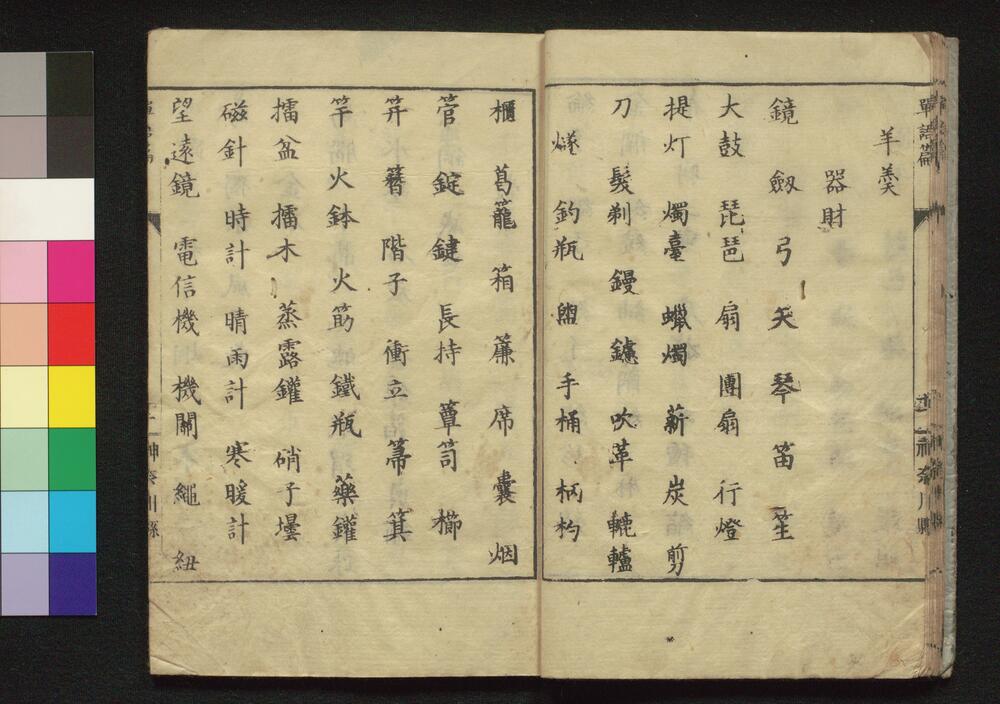 單語篇
十二 神奈川縣
羊羹
器財
鏡 劔 弓 矢 琴 笛 笙
大鼓 琵琶 扇 團扇 行燈
提灯 燭臺 蠟燭 薪 炭 剪
刀 髮剃 鏝 鑢 吹革 轆轤
燧 釣瓶 盥 手桶 柄杓
櫃 葛籠 箱 簾 席 囊 烟
管 錠 鍵 長持 簞笥 櫛
笄 水簪 階子 衝立 箒 箕
竿 火鉢 火筯 鐵瓶 藥鑵
擂盆 擂木 蒸露鑵 硝子壜
磁針 時計 晴雨計 寒暖計
望遠鏡 電信機 機關 繩 紐
神奈川縣